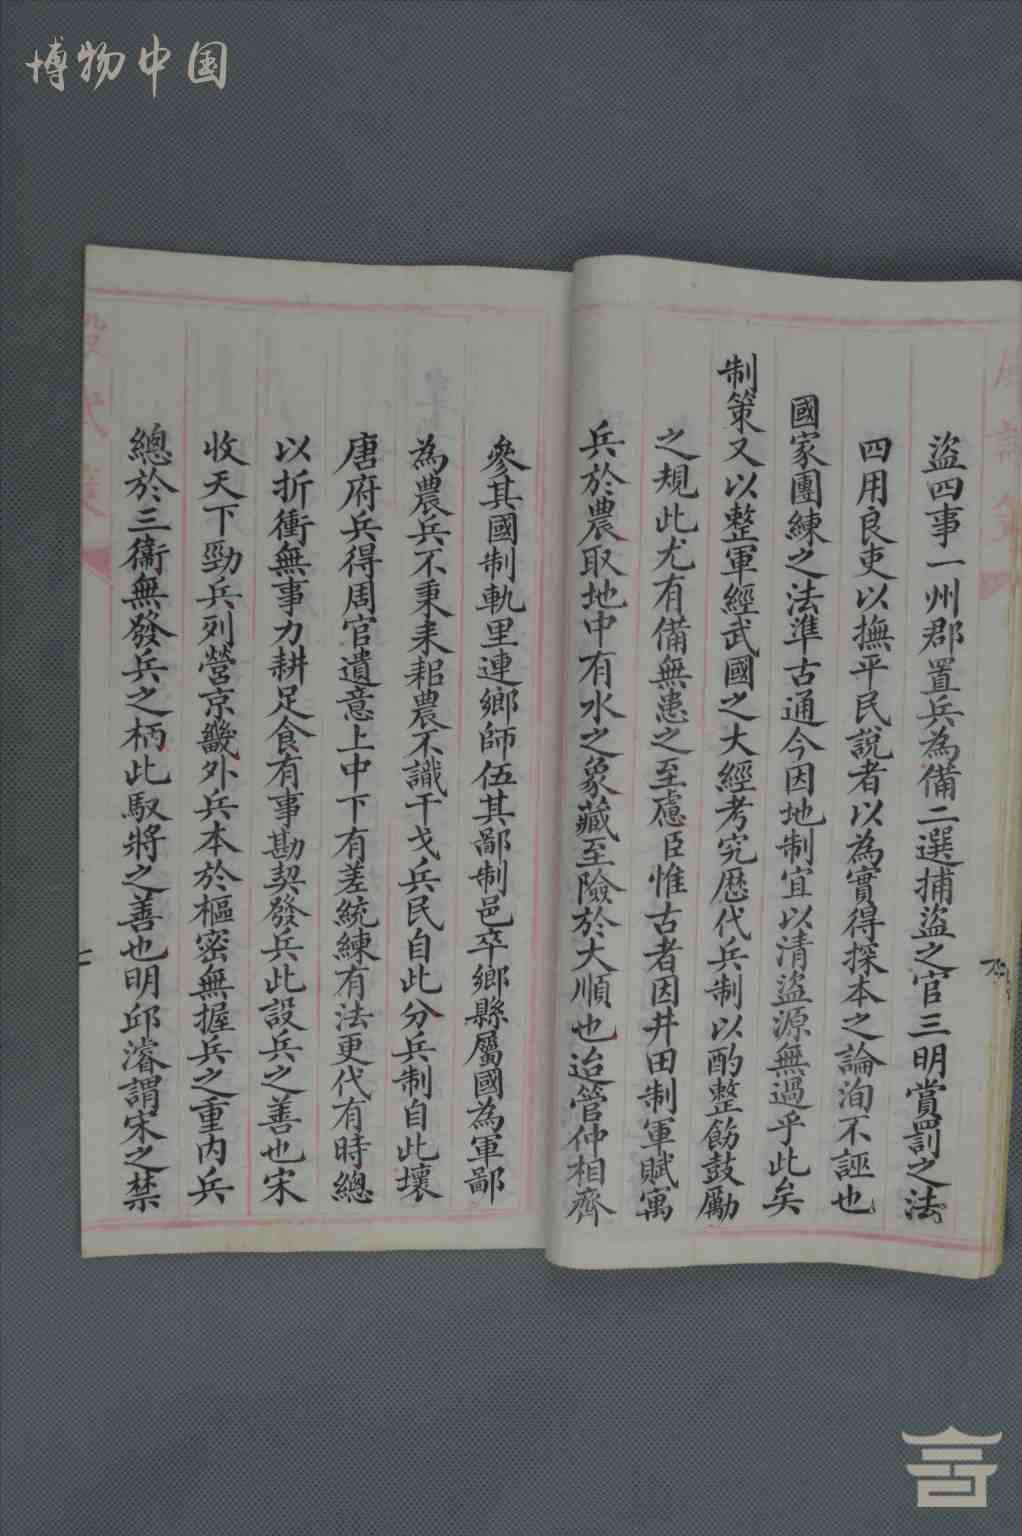 博物中国
盜四事一州郡置兵為備二選捕盜之官三明賞罰之法
四用良吏以撫平民說者以為實得探本之論洵不誣也
國家團練之法準古通今因地制宜以清盜源無過乎此矣
制策又以整軍經武國之大經考究歷代兵制以酌整飭鼓勵
之規此尤有備無患之至慮臣惟古者因井田制軍賦寓
兵於農取地中有水之象藏至險於大順也迨管仲相齊
參其國制軌里連鄉師伍其鄙制邑卒鄉縣屬國為軍鄙
為農兵不秉耒耜農不識干戈兵民自此分兵制自此壞
唐府兵得周官遺意上中下有差統練有法更代有時總
以折衝無事力耕足食有事勘契發兵此設兵之善也宋
收天下勁兵列營京畿外兵本於樞密無握兵之重內兵
總於三衛無發兵之柄此馭將之善也明邱濬謂宋之禁